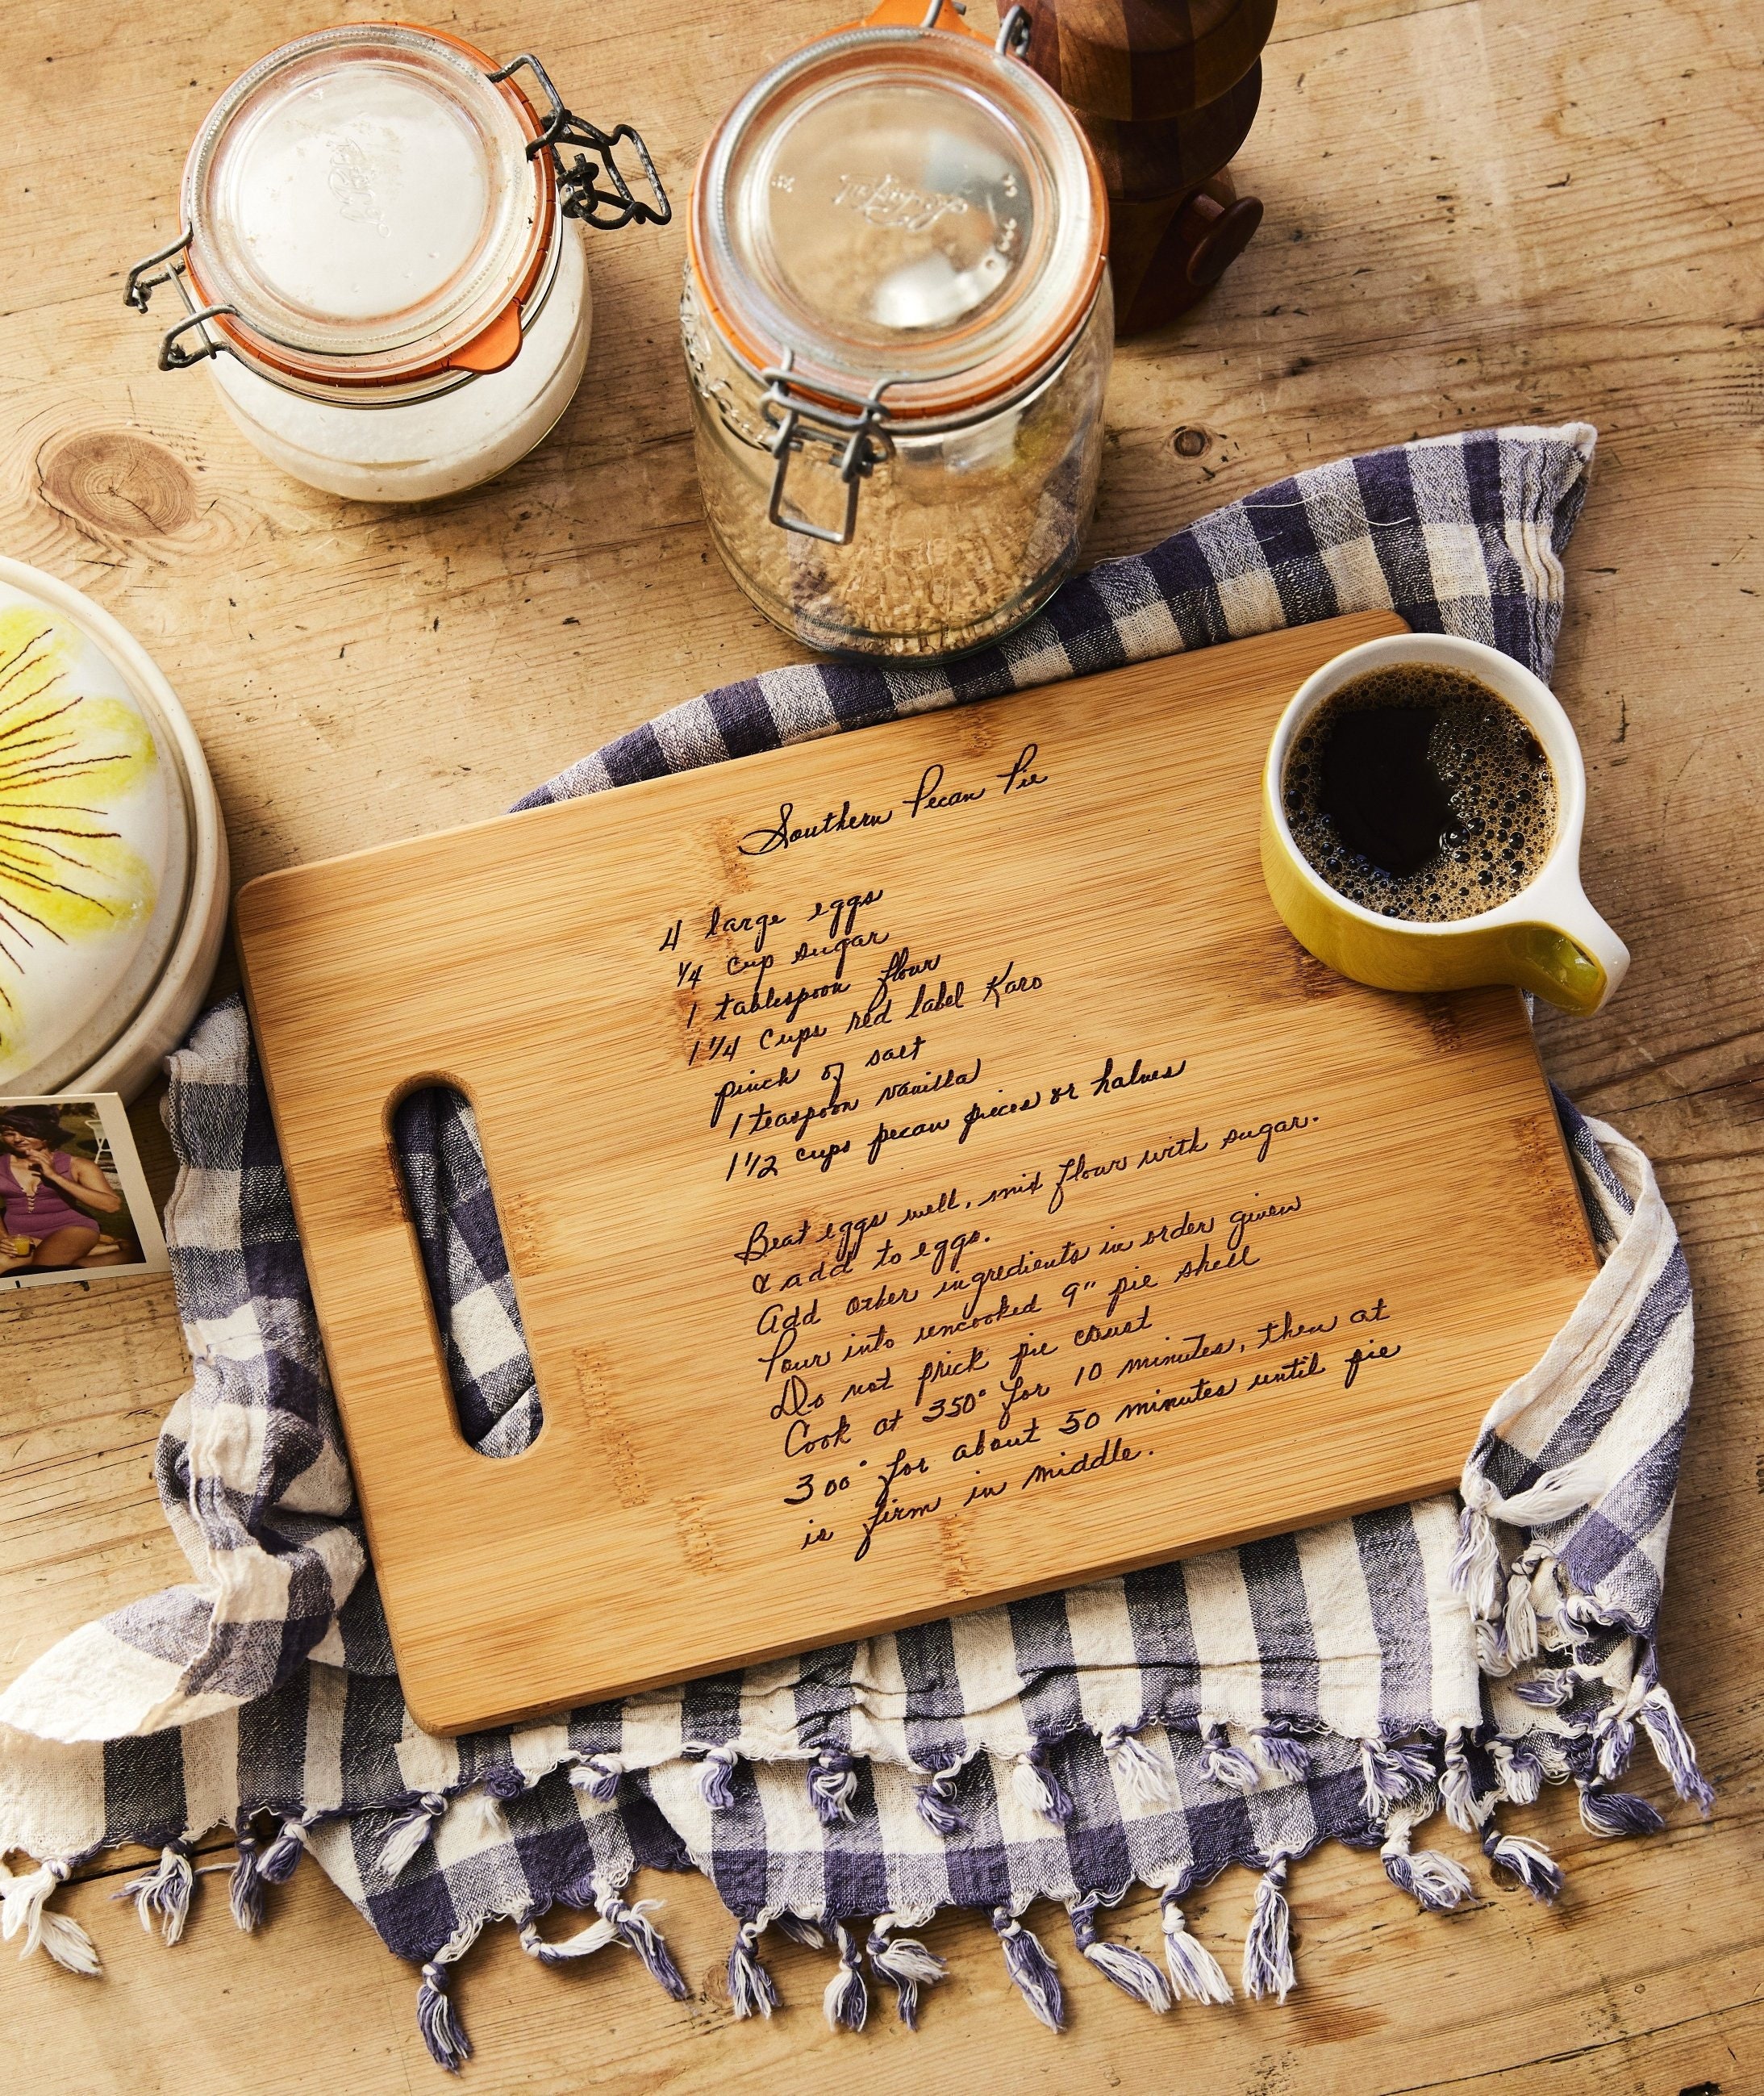 Southern Pecan Pie
4 large eggs
1/4 cup sugar
1 tablespoon flour
1 1/4 cups red label Karo
pinch of salt
1 teaspoon vanilla
1 1/2 cups pecan pieces or halves
Beat eggs well, mix flour with sugar.
& add to eggs.
Add other ingredients in order given
Pour into uncooked 9" pie shell
Do not prick pie crust
Cook at 350° for 10 minutes, then at
300° for about 50 minutes until pie
is firm in middle.